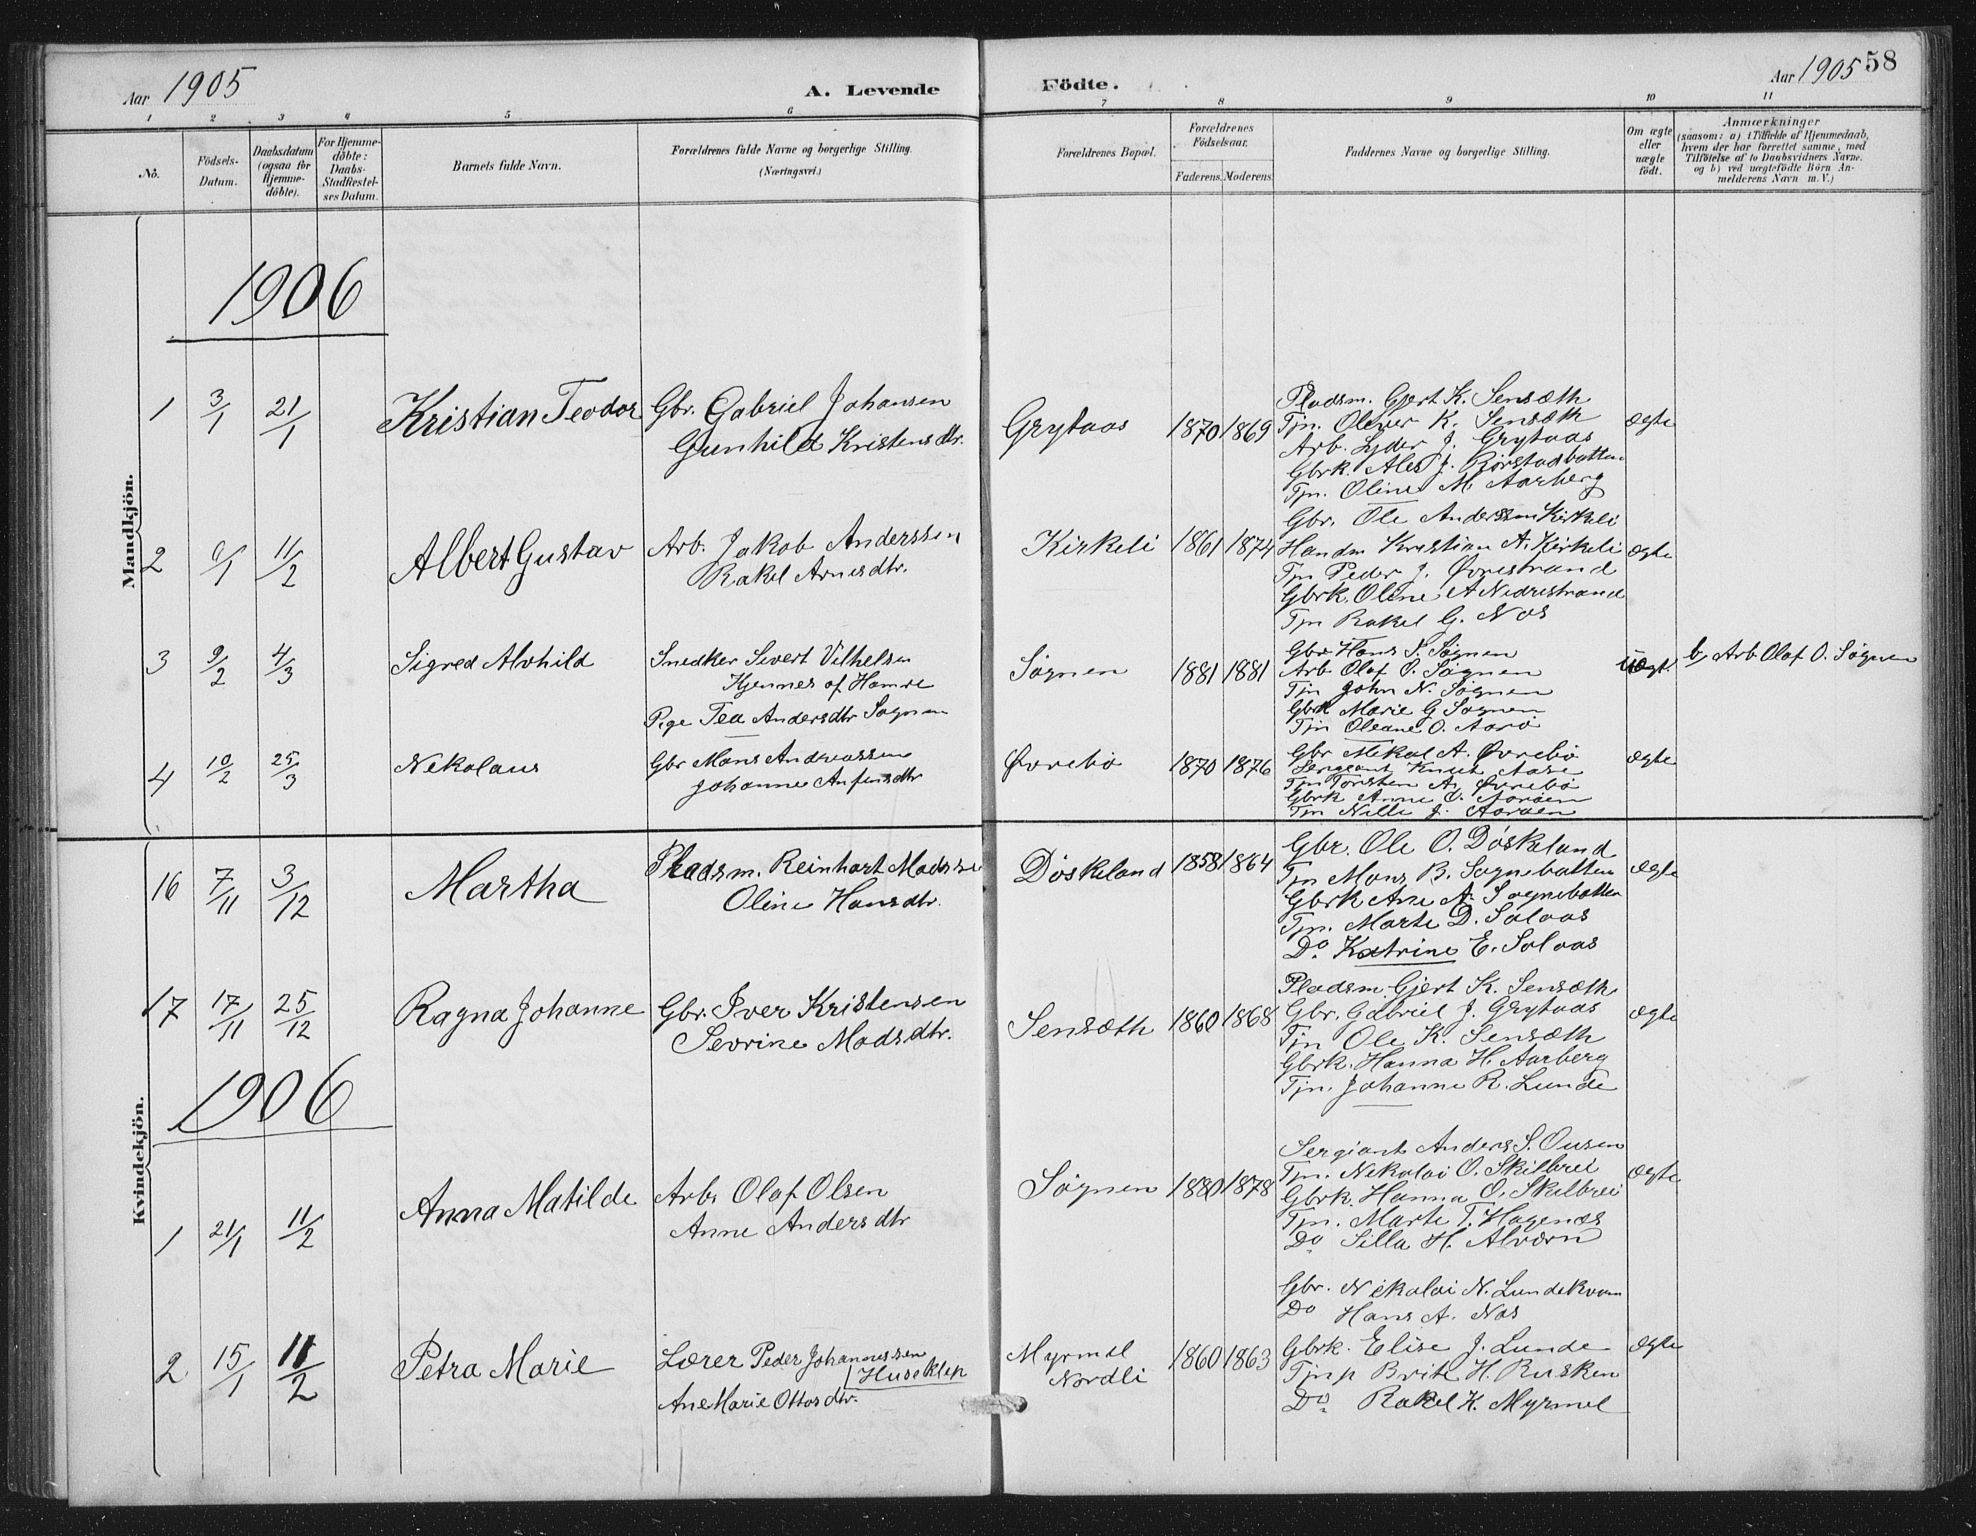 Aar 1905
A. Levende
Födte.
Aar 1905 58
1 2 3 4 5 6 7 8 9 10 11
No.
Födsels-
Datum.
Daabsdatum
(ogsaa for
Hjemme-
döbte).
For Hjemme-
döbte:
Daabs-
Stadfæstel-
ses Datum.
Barnets fulde Navn.
Forældrenes fulde Navne og borgerlige Stilling.
(Næringsvei.)
Forældrenes Bopæl.
Forældrenes
Födselsaar.
Faderens. Moderens.
Faddernes Navne og borgerlige Stilling.
Om ægte
eller
uægte
födt.
Anmærkninger
(saasom: a) i Tilfælde af Hjemmedaab,
hvem der har forrettet samme, med
Tilföielse af to Daabsvidners Navne.
og b) ved uægtefödte Börn An-
melderens Navn m. V.)
Mandkjön.
1906
1 3/1 21/1 Kristian Teodor
Gbr. Gabriel Johansen
Gunhild Kristensdtr.
Grytaas 1870 1869
Pladsm. Gjert K. Sensæth
Tjn. Oliver K. Sensæth
Arb. Lyder J. Grytaas
Gbrk. Ales J. Rørstadbotten
Tjn. Oline M. Aarberg
ægte
2 11/2 Albert Gustav
Arb. Jakob Anderssen
Rakel Arnesdtr.
Kirkeli 1861 1874
Gbr. Ole Anderssen Kirkeli
Handm Kristian A. Kirkeli
Tjn Peder J. Øvrestrand
Gbrk. Oline A Nedrestrand
Tjn Rakel G. Nos
ægte
3 9/2 4/3 Sigred Alvhild
Snedker Sivert Vilhelsen
Hjennes af Hamre
Pige Tea Andersdtr Søgnen
Søgnen 1881 1881
Gbr Hans N. Søgnen
Arb Olaf O. Søgnen
Tjn John N. Søgnen
Gbrk Marie G Søgnen
Tjn Oleane O. Aarø
uægt.
b, Arb Olaf O. Søgnen
4 10/2 25/3 Nekolaus
Gbr Mons Andreassen
Johanne Anfinsdtr
Øvrebø 1870 1876
Gbr Mekal A. Øvrebø
Sergeant Knut Aase
Tjn Torsten A. Øvrebø
Gbrk Anne O. Aarøen
Tjn Nille J. Aarøen
ægte
Kvindekjön.
16 7/11 3/12 Martha
Pladsm. Reinhart Madssen
Oline Hansdtr.
Døskeland 1858 1864
Gbr. Ole O. Døskeland
Tjn Mons B. Sognebotten
Gbrk Ane A. Sognebotten
Tjn. Marte D. Solaas
Do. Katrine E. Solaas
ægte
17 17/11 25/12 Ragna Johanne
Gbr. Iver Kristensen
Sevrine Madsdtr.
Sensæth 1860 1868
Pladsm. Gjert K. Sensæth
Gbr. Gabriel J. Grytaas
Tjn Ole K. Sensæth
Gbrk. Hanna H. Aarberg
Tjn. Johanne R. Lunde
ægte
1906
1 21/1 11/2 Anna Matilde
Arb. Olaf Olsen
Anne Andersdtr
Søgnen 1880 1878
Sergiant Anders S. Ousen
Tjn. Nekolai O. Skilbrei
Gbrk. Hanna O. Skilbrei
Tjn. Marte T. Hagenæs
Do Silla H. Alværn
ægte
2 15/1 11/2 Petra Marie
Lærer Peder Johannessen
Huseklep
Ane Marie Ottosdtr.
Myrmel
Nordli
1860 1863
Gbr. Nikolai N. Lundekvam
Do Hans A. Nos
Gbrk. Elise J. Lunde
Tjnp Brite H. Rusken
Do. Rakel K. Myrmel
ægte